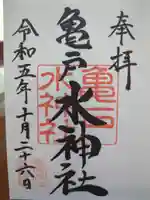 奉拝
亀戸水神社
亀戸
水神社
令和五年十月二十六日